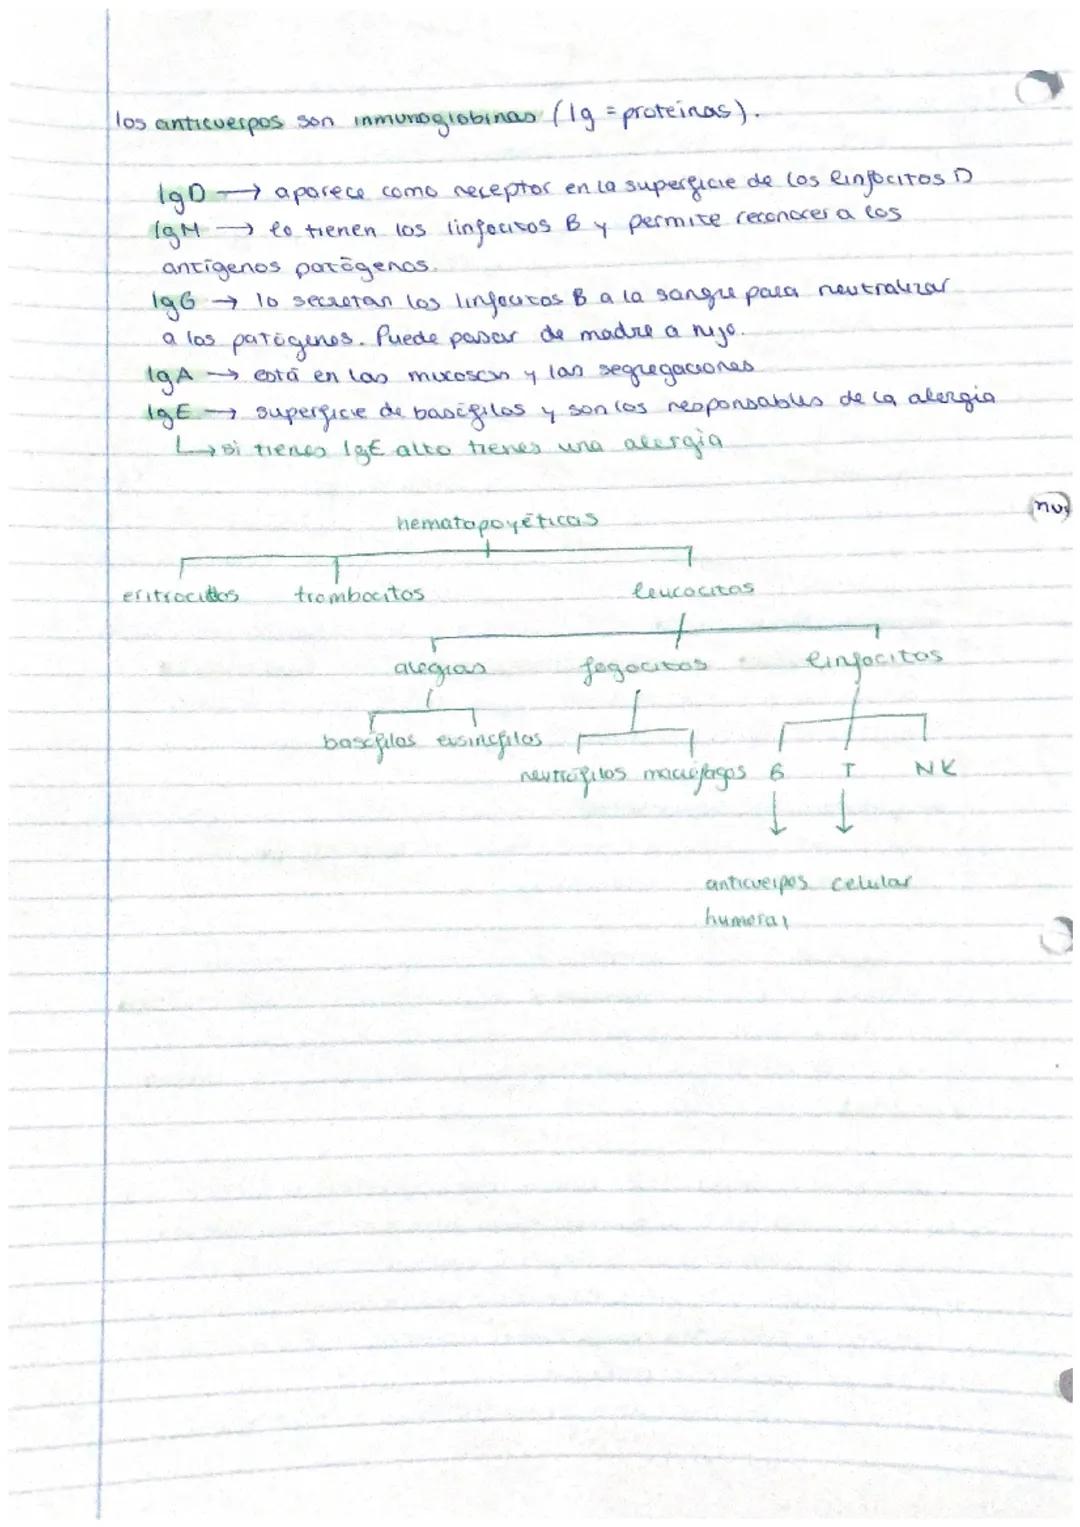 los anticuerpos son inmunoglobinas (Ig = proteínas).
IgD → aparece como receptor en la superficie de los linfocitos D
IgM → lo tienen los linfocitos B y permite reconocer a los
antígenos patógenos.
IgG → lo secretan los linfocitos B a la sangre para neutralizar
a los patógenos. Puede pasar de madre a hijo.
IgA → está en las mucosas y las segregaciones
IgE → superficie de basófilos y son los responsables de la alergia
↳ si tienes IgE alto tienes una alergia
hematopoyéticas
eritrocitos trombocitos leucocitos
alegias fagocitos linfocitos
basófilos eosinófilos
neutrófilos macrófagos B T NK
↓ ↓
anticuerpos celular
humoral